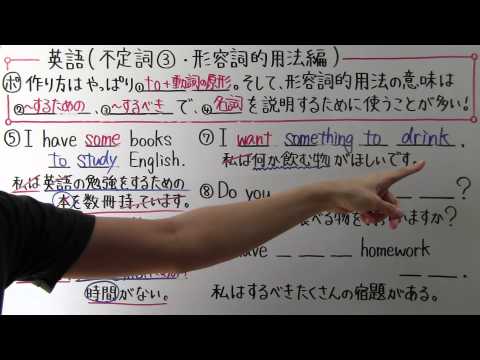 英語(不定詞③・形容詞的用法編)
ポ 作り方はやっぱり①to+動詞の原形。そして、形容詞的用法の意味は
②~するための、③~するべき で、④名詞を説明するために使うことが多い!
⑤I have some books
to study English.
私は英語の勉強をするための
本を数冊持っています。
時間がない。
⑦I want something to drink.
私は何か飲む物がほしいです。
⑧Do you _ _ _?
べる物を いますか?
have _ _ _ homework
_ _ _.
私はするべきたくさんの宿題がある。